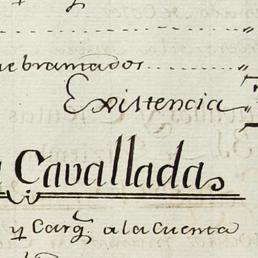 uebramados
Existencia
Cavallada
y Carg. a la Cuenta